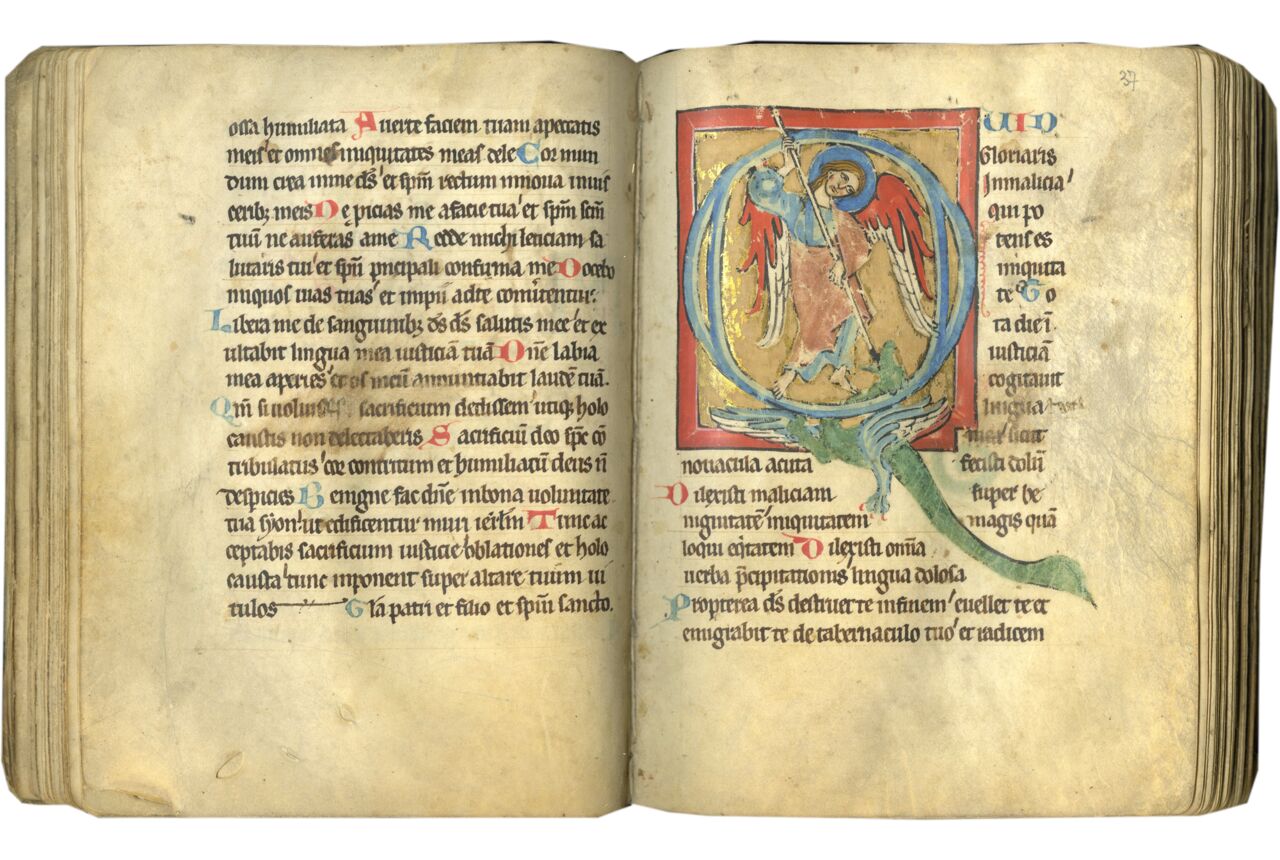 ossa humiliata Auerte faciem tuam apeccatis
meis et omnes iniquitates meas dele Cor mun
dum crea inme ds et spm rectum innoua inuis
cerib; meis Ne picias me afacie tua et spm scm
tuū ne auferas ame Redde michi leticiam sa
lutaris tui et spū pncipali confirma me Docebo
iniquos uias tuas et impii adte conuertentur.
Libera me de sanguinib; ds ds salutis mee et ex
ultabit lingua mea iusticiā tuā Dne labia
mea aperies et os meū annuntiabit laudē tuā.
Qm si uoluisses sacrificium dedissem utiq; holo
caustis non delectaberis Sacrificiū deo spc cō
tribulatus cor contritum et humiliatū deus ñ
despicies Benigne fac dne inbona uoluntate
tua syon ut edificentur muri ierlm Tunc ac
ceptabis sacrificium iusticie oblationes et holo
causta tunc inponent super altare tuum ui
tulos Gla patri et filio et spui sancto.
37
QUID
Gloriaris
Inmalicia
qui po
tens es
iniquita
te To
ta die ī
iusticiā
cogitauit
lingua
sicut
nouacula acuta fecisti dolū
Dilexisti maliciam super be
nignitatē iniquitatem magis quā
loqui eqtatem Dilexisti omīa
uerba pcipitationis lingua dolosa
Propterea ds destruet te infinem euellet te et
emigrabit te de tabernaculo tuo et radicem